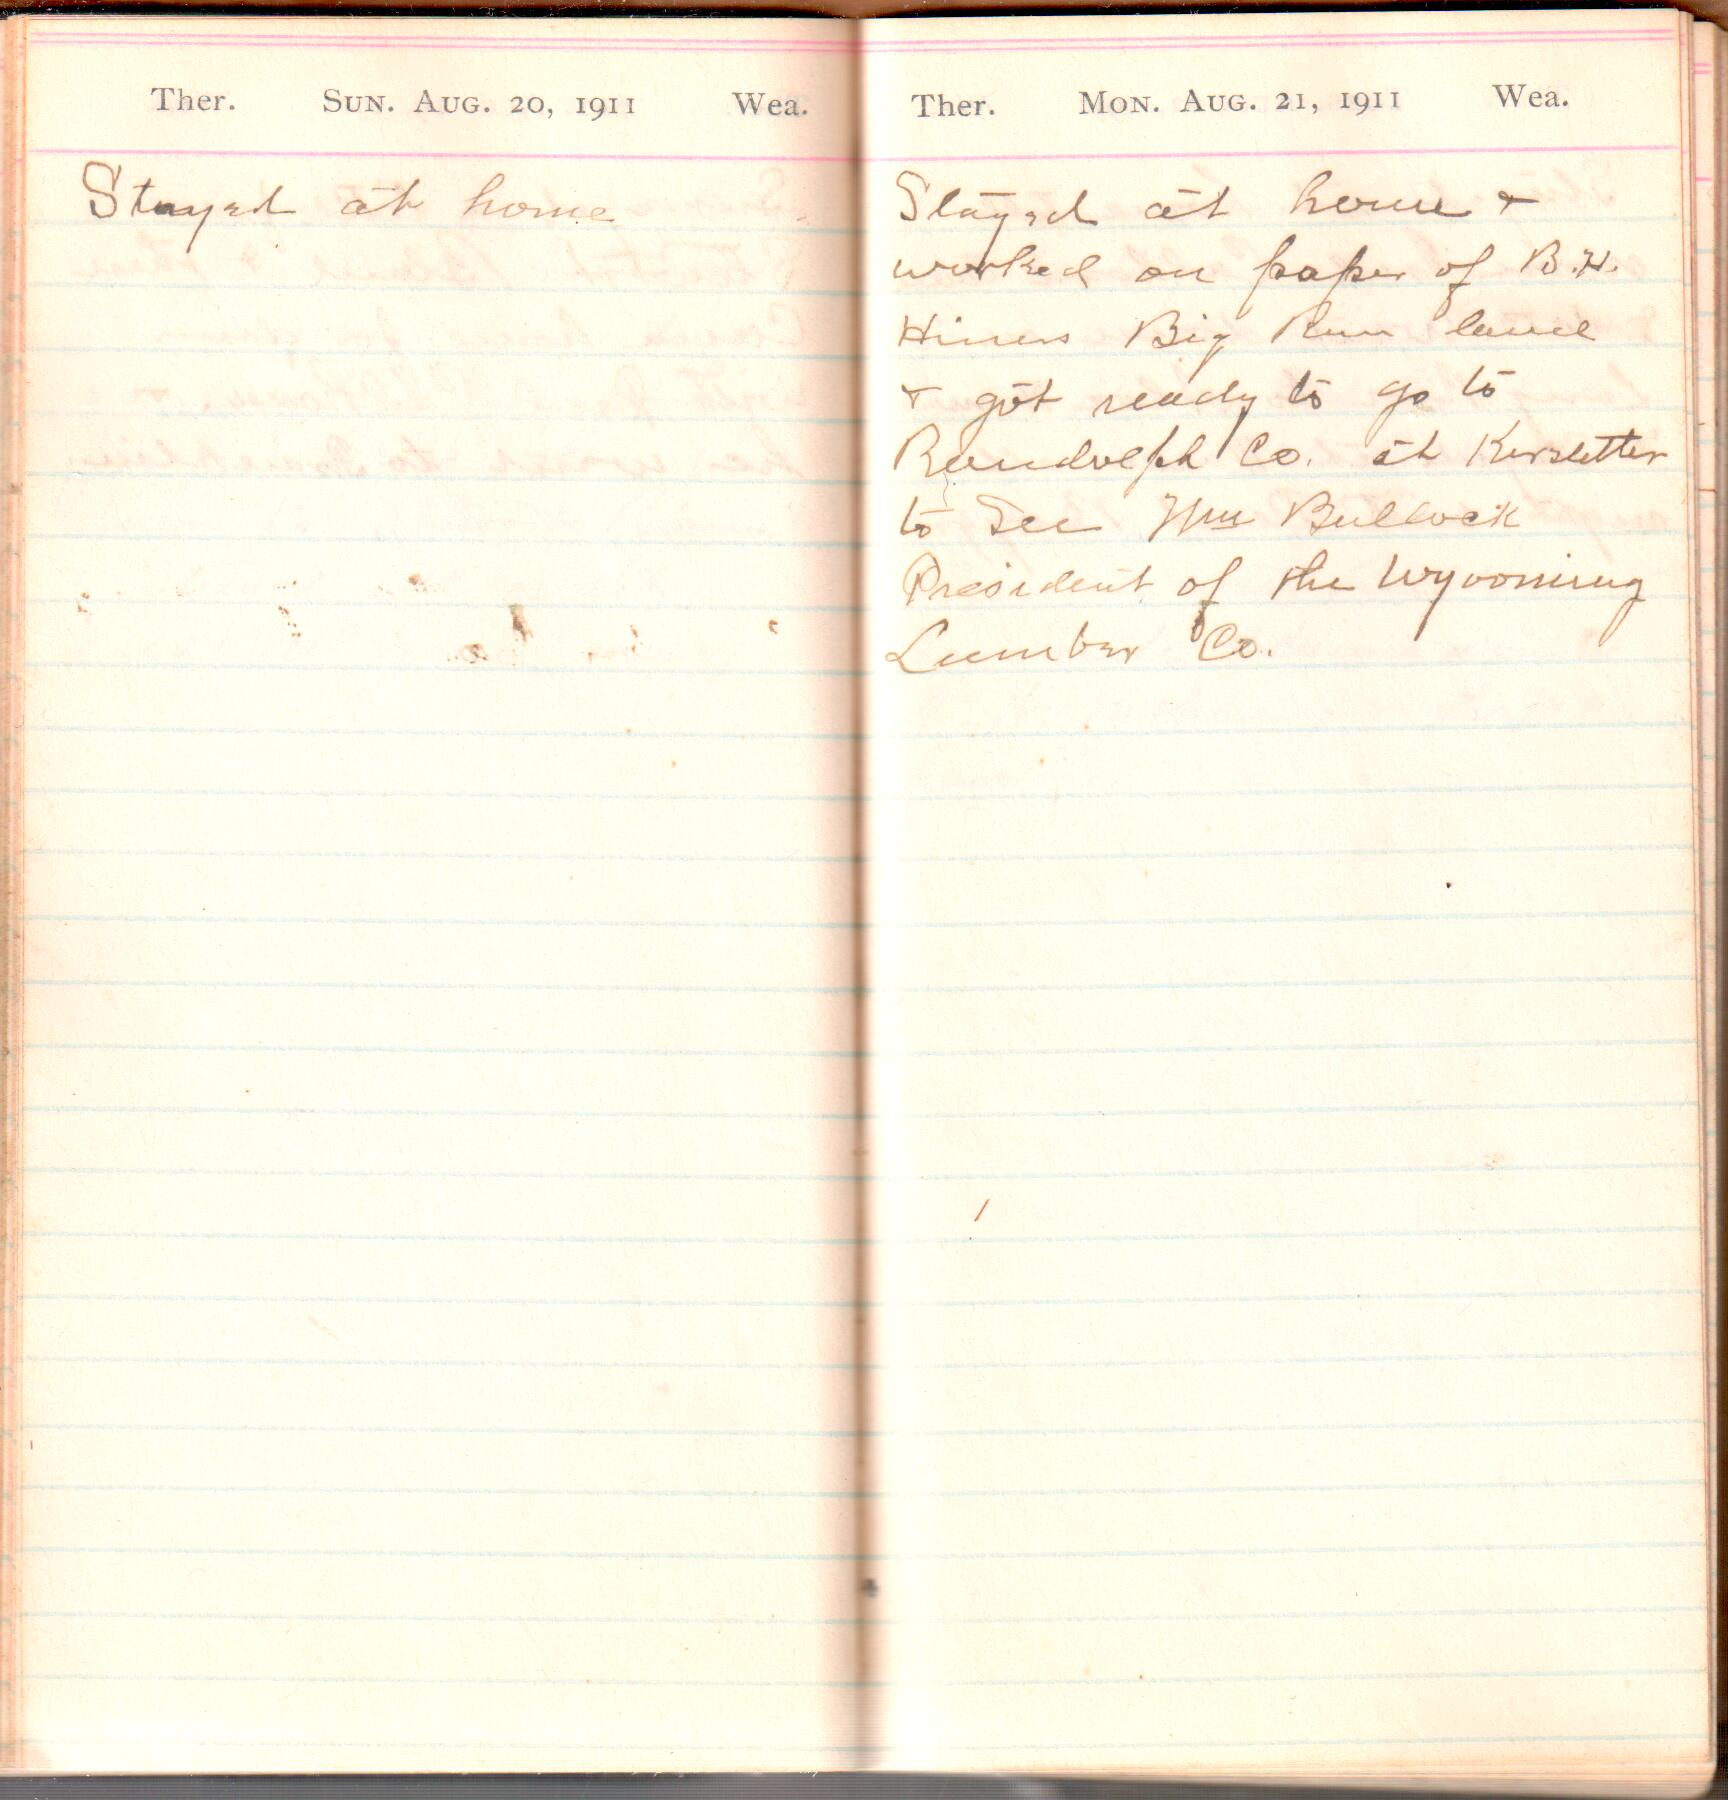 Ther. Sun. Aug. 20, 1911 Wea.
Stayed at home
Ther. Mon. Aug. 21, 1911 Wea.
Stayed at home &
worked on paper of B.H.
Hiners Big Run land
& got ready to go to
Randolph Co. at
to See Wm Bullock
President of the Wyooming
Lumber Co.